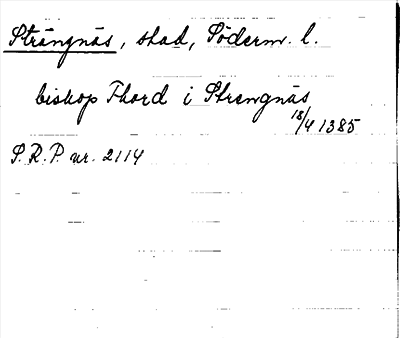 Strängnäs, stad, Söderm. l.
biskop Thord i Strengnäs
18/4 1385
S.R.P. nr. 2114